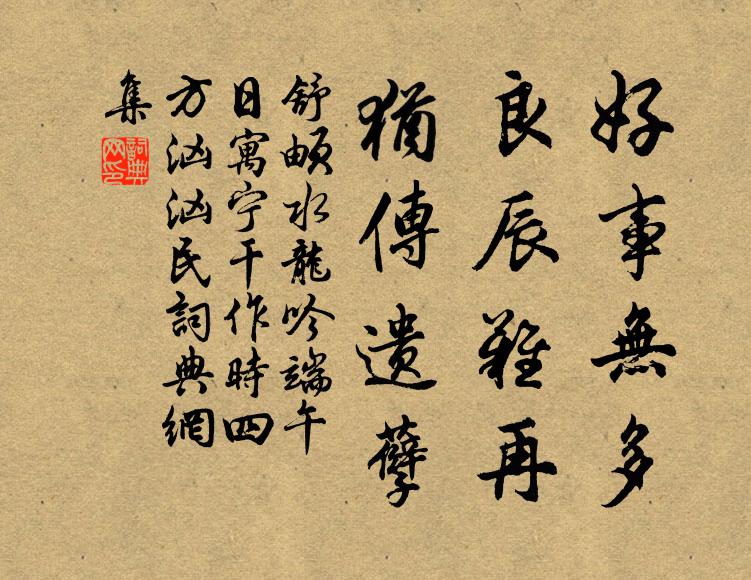 好事無多
良辰難再
猶傳遺孽
舒頔水龍吟端午
日寓宁干作時四
方汹汹民詞典網
集
詞典
网印